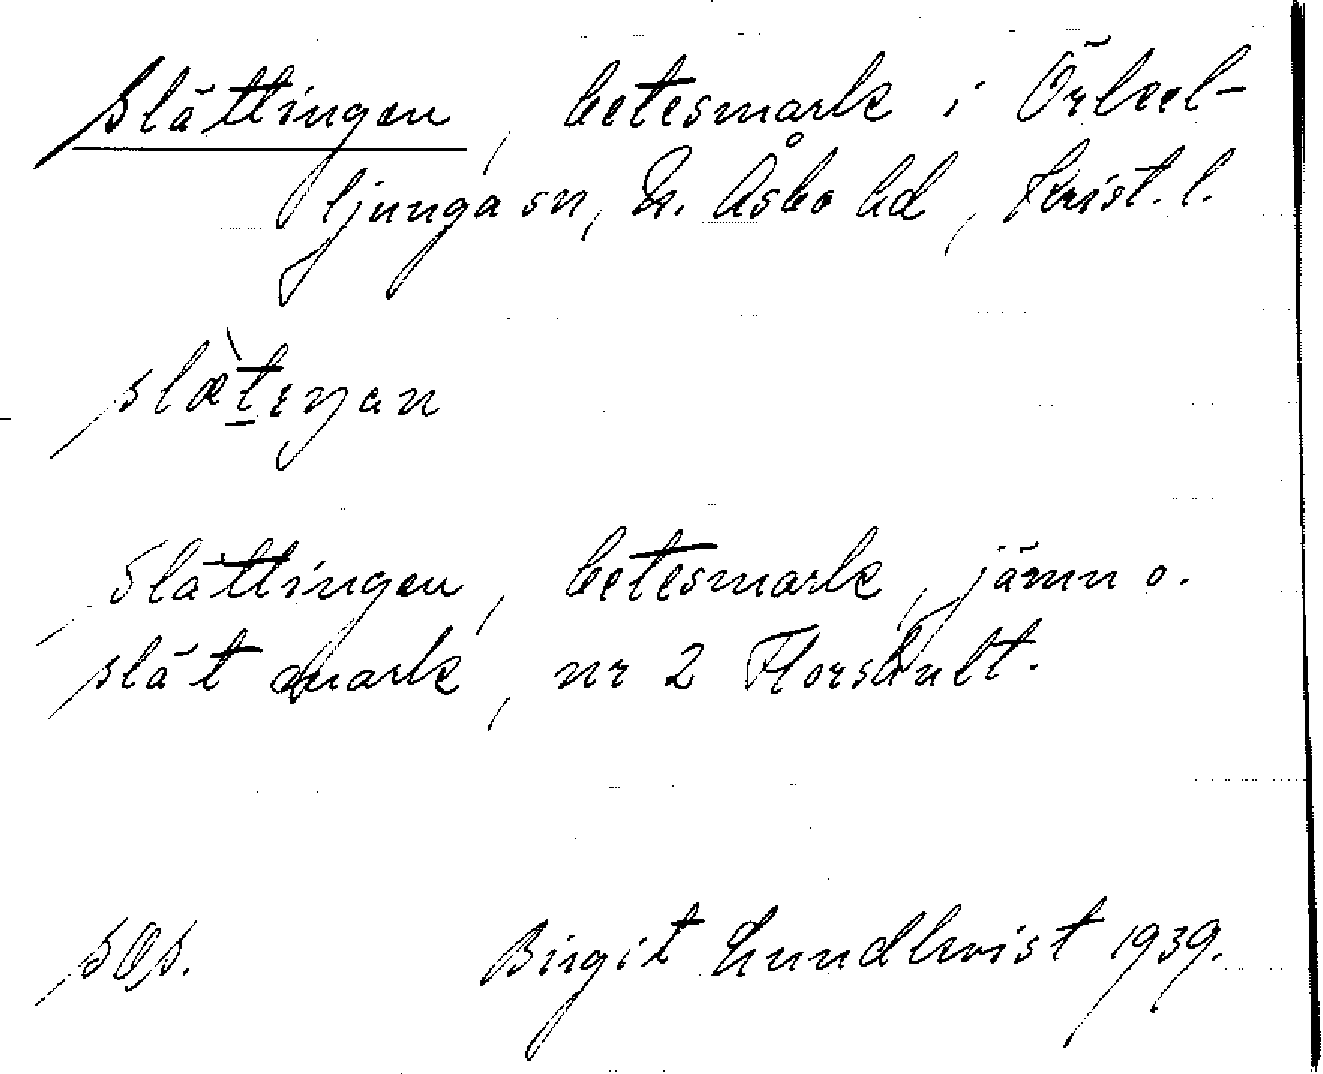 Slättingen, betesmark i Örkel-
ljunga sn, N. Åsbo hd, Krist. l.
slæ̀tɛŋan
Slättingen, betesmark, jämn o.
slät mark, nr 2 Florshult.
SOS. Birgit Lundkvist 1939.